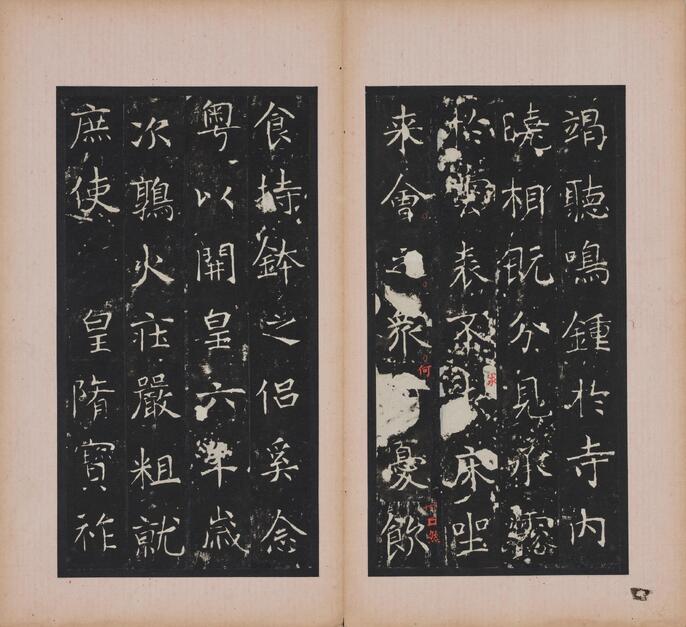 竭聽鳴鍾於寺内
曉相既分見承露
於雲表不求床坐
来會之衆 憂飲
何
食持鉢之侣奚念
粤以開皇六年歲
次鶉火莊嚴粗就
庶使 皇隋寳祚